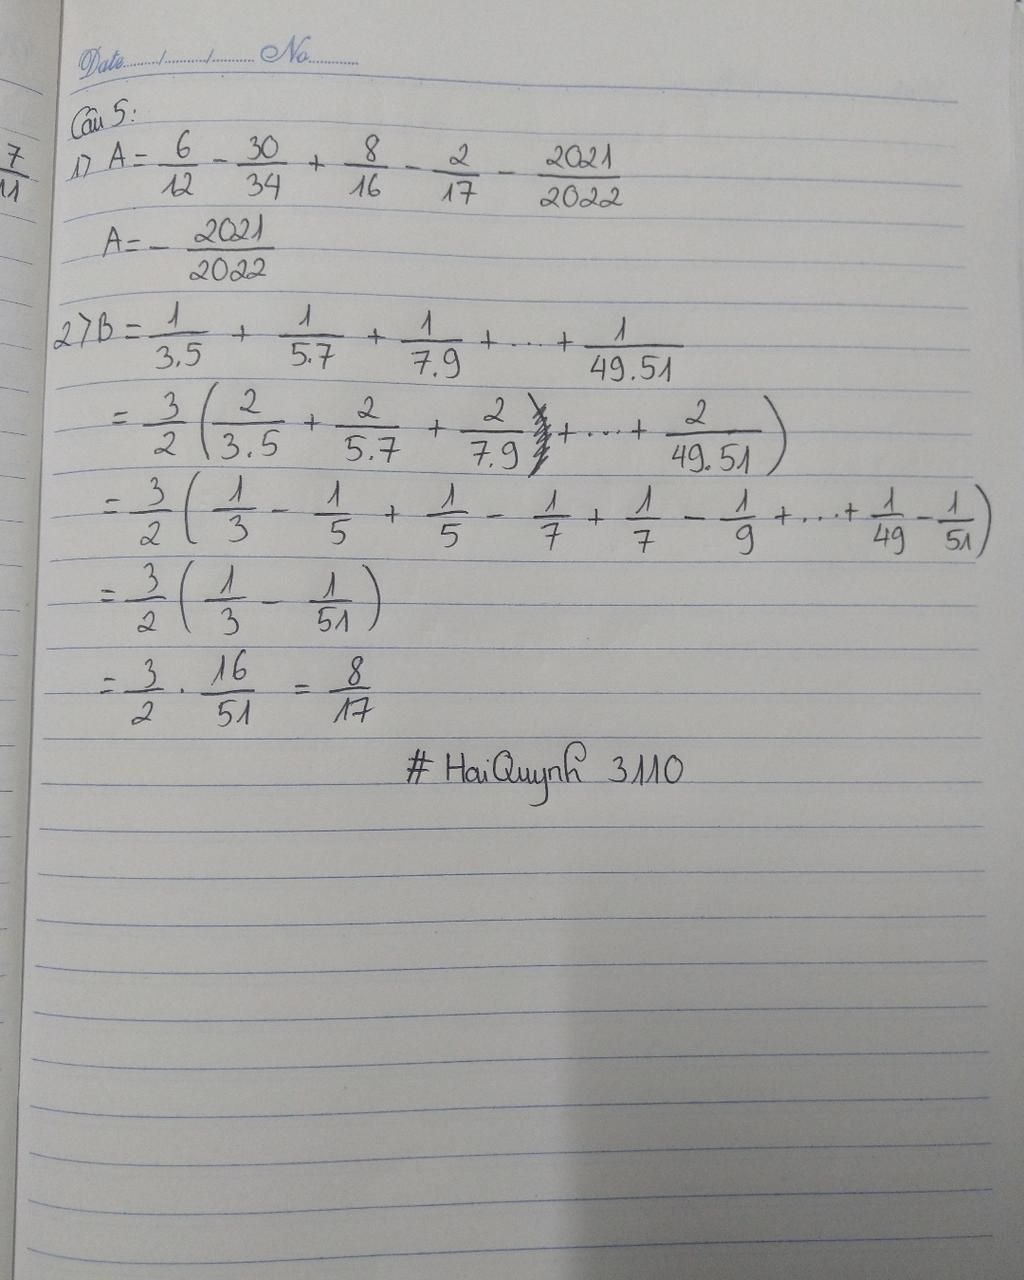 Date......./......../......... No..........
Câu 5:
7/11
1> A = 6/12 - 30/34 + 8/16 - 2/17 - 2021/2022
A = - 2021/2022
2> B = 1/3.5 + 1/5.7 + 1/7.9 + ... + 1/49.51
= 3/2 ( 2/3.5 + 2/5.7 + 2/7.9 + ... + 2/49.51 )
= 3/2 ( 1/3 - 1/5 + 1/5 - 1/7 + 1/7 - 1/9 + ... + 1/49 - 1/51 )
= 3/2 ( 1/3 - 1/51 )
= 3/2 . 16/51 = 8/17
# HaiQuynh 3110